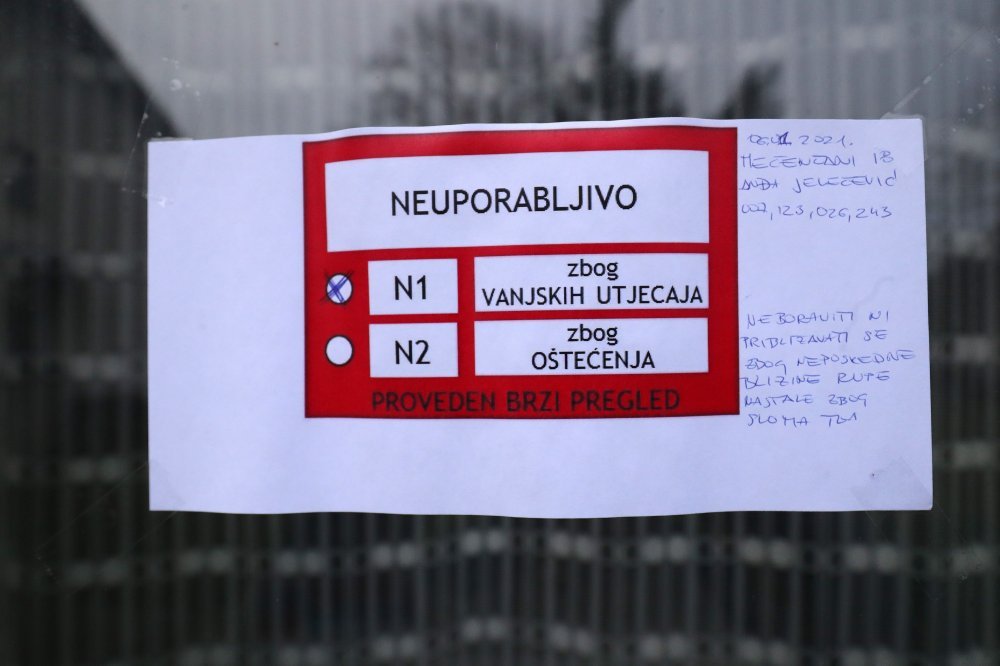 NEUPORABLJIVO
N1
zbog
VANJSKIH UTJECAJA
N2
zbog
OŠTEĆENJA
PROVEDEN BRZI PREGLED
2021.
MEČENČANI 18
ANĐA JELEČEVIĆ
007,123,026,243
NE BORAVITI NI
PRIBLIŽAVATI SE
ZBOG NEPOSREDNE
BLIZINE RUPE
NASTALE ZBOG
SLOMA TLA